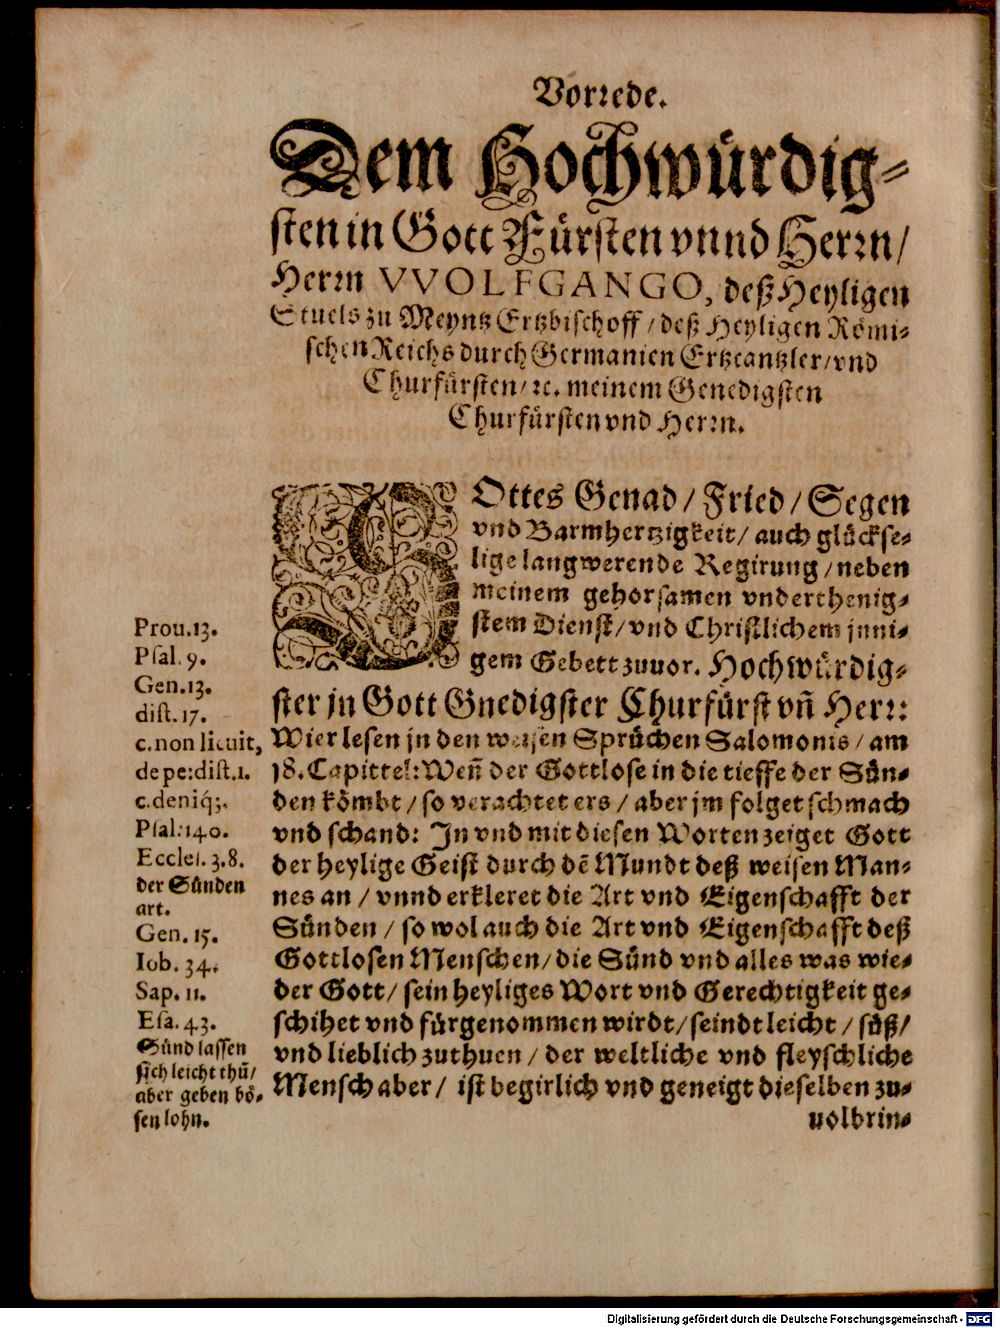 Vorrede.
Dem Hochwürdig-
sten in Gott Fürsten vnnd Herrn/
Herrn VVOLFGANGO, deß Heyligen
Stuels zu Meyntz Ertzbischoff/deß Heyligen Römi-
schen Reichs durch Germanien Ertzcantzler/vnd
Churfürsten/ꝛc. meinem Genedigsten
Churfürsten vnd Herrn.
GOttes Genad/Fried/Segen
vnd Barmhertzigkeit/auch glückse-
lige langwerende Regirung/neben
meinem gehorsamen vnderthenig-
stem Dienst/vnd Christlichem jnni-
gem Gebett zuuor. Hochwürdig-
ster jn Gott Gnedigster Churfürst vñ Herr:
Wier lesen jn den weisen Sprüchen Salomonis/am
18. Capittel: Weñ der Gottlose in die tieffe der Sün-
den kömbt/so verachtet ers/aber jm folget schmach
vnd schand: In vnd mit diesen Worten zeiget Gott
der heylige Geist durch dē Mundt deß weisen Man-
nes an/vnnd erkleret die Art vnd Eigenschafft der
Sünden/so wol auch die Art vnd Eigenschafft deß
Gottlosen Menschen/die Sünd vnd alles was wie-
der Gott/sein heyliges Wort vnd Gerechtigkeit ge-
schihet vnd fürgenommen wirdt/seindt leicht/süß/
vnd lieblich zuthuen/der weltliche vnd fleyschliche
Mensch aber/ist begirlich vnd geneigt dieselben zu-
uolbrin-
Prou.13.
Psal.9.
Gen.13.
dist.17.
c.non licuit,
de pe:dist.1.
c.deniq;.
Psal:140.
Eccles.3.8.
der Sünden
art.
Gen.15.
Iob.34.
Sap.11.
Esa.43.
Sünd lassen
sich leicht thū/
aber geben bö-
sen lohn.
Digitalisierung gefördert durch die Deutsche Forschungsgemeinschaft - DFG